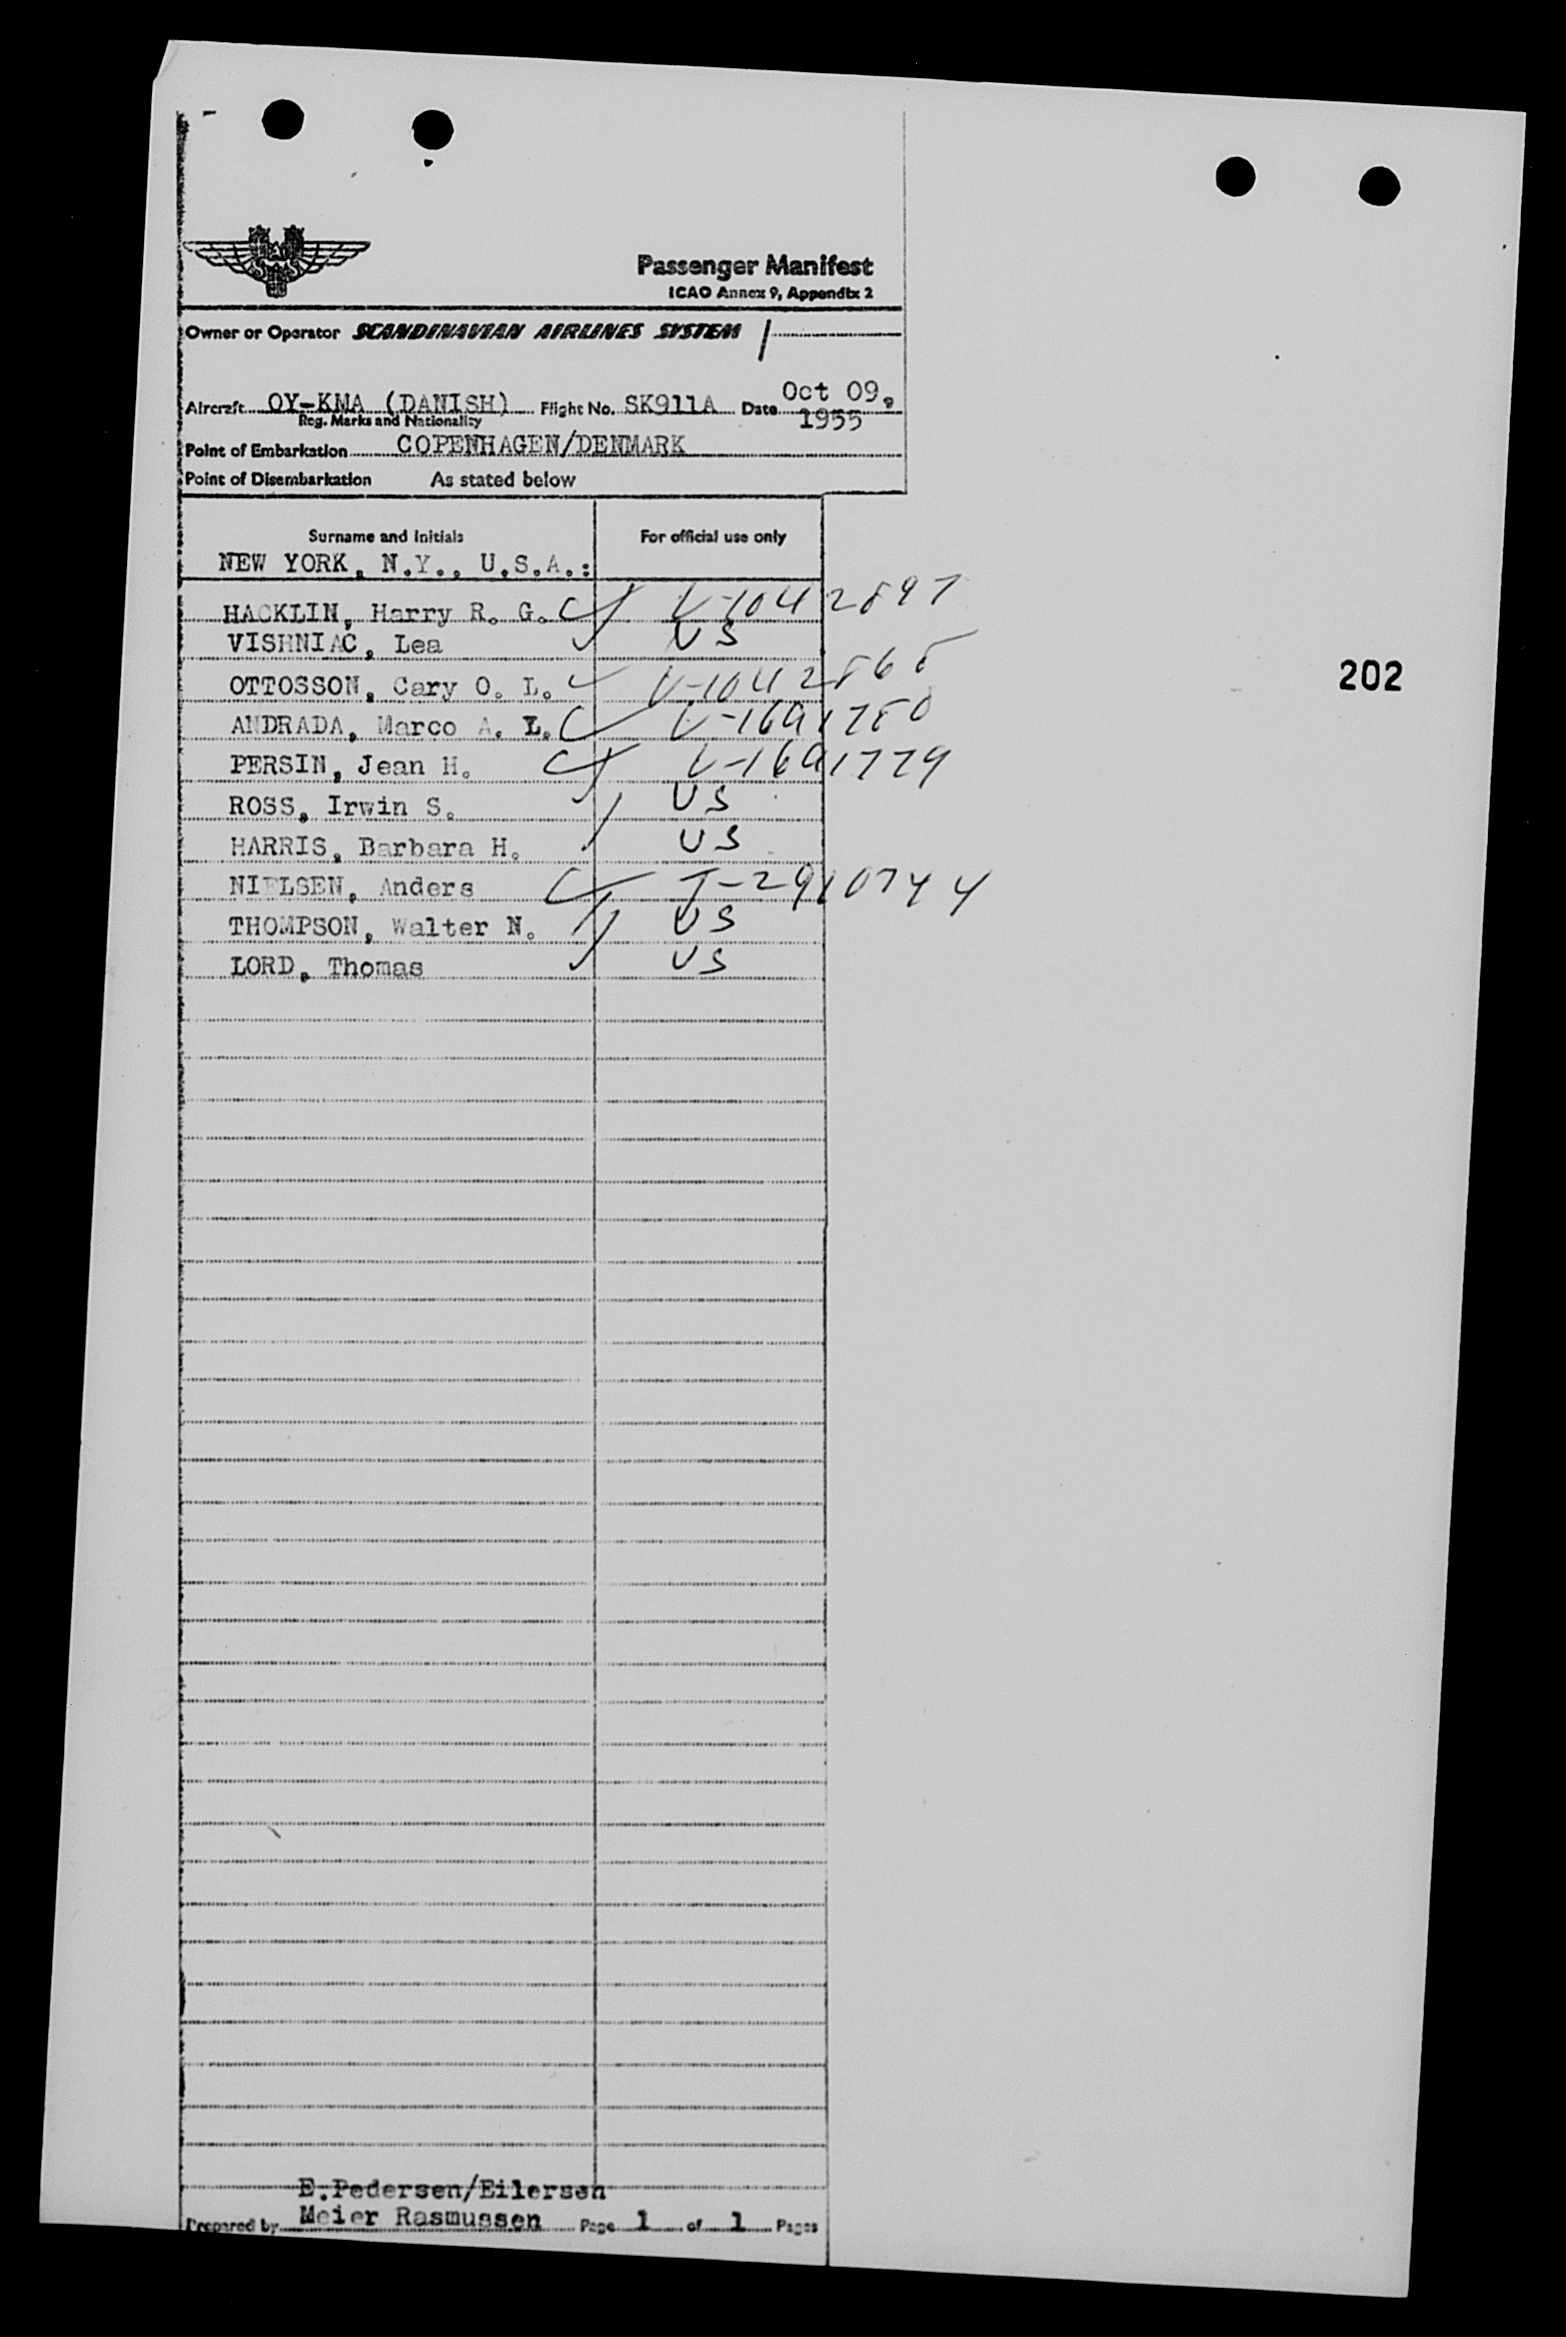 Passenger Manifest
ICAO Annex 9, Appendix 2
Owner or Operator SCANDINAVIAN AIRLINES SYSTEM
Aircraft OY-KMA (DANISH) Flight No. SK911A Date Oct 09, 1955
Reg. Marks and Nationality
Point of Embarkation COPENHAGEN/DENMARK
Point of Disembarkation As stated below
Surname and Initials For official use only
NEW YORK, N.Y., U.S.A.:
HACKLIN, Harry R. G. V-1042897
VISHNIAC, Lea US
OTTOSSON, Cary O. L. V-1042868
202
ANDRADA, Marco A. L. V-1691780
PERSIN, Jean H. V-1691779
ROSS, Irwin S. US
HARRIS, Barbara H. US
NIELSEN, Anders T-2910744
THOMPSON, Walter N. US
LORD, Thomas US
E.Pedersen/Eilersen
Prepared by Meier Rasmussen Page 1 of 1 Pages